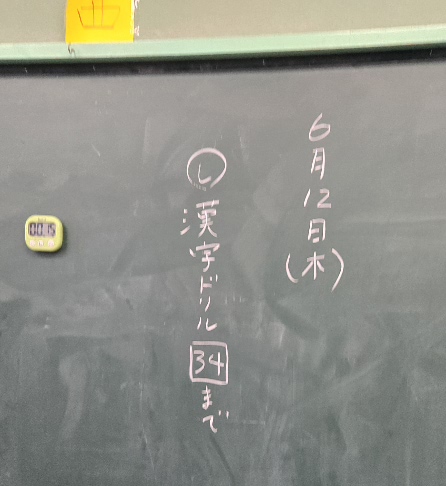 6月12日(木)
Ⓛ漢字ドリル34まで
00.15